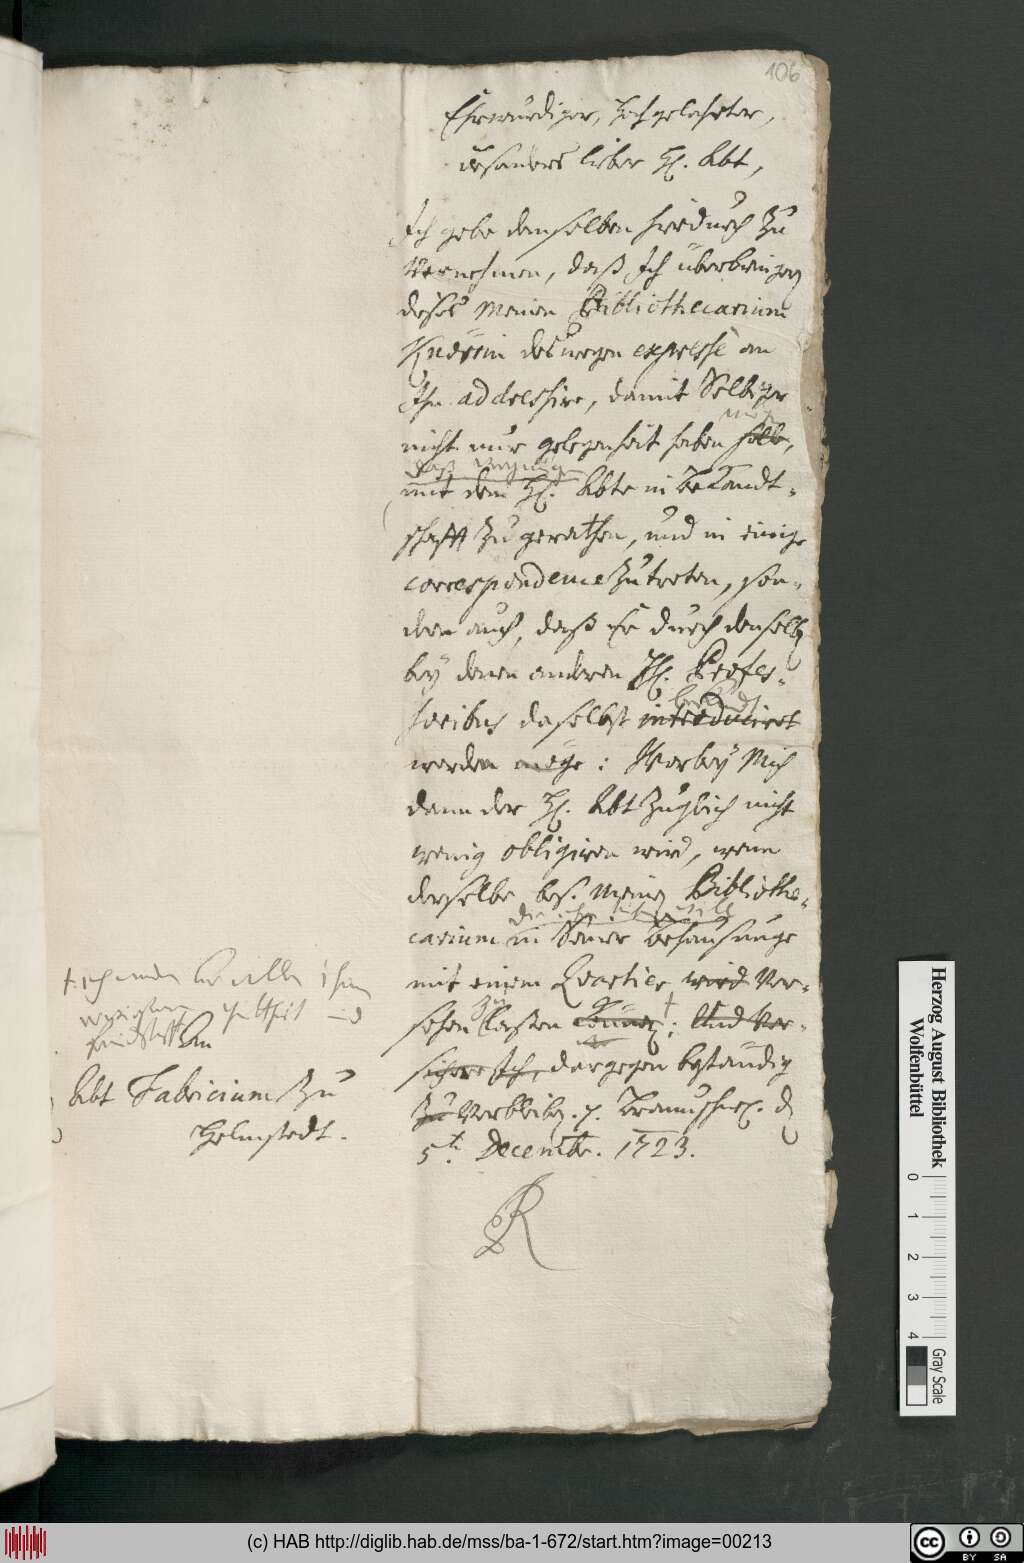 106
Ehrwürdiger, Hochgelahrter,
besonders lieber H. Abt,
Ich gebe demselben hiedurch zu
Vernehmen, daß Ich überbringern
dieses Meinen Bibliothecarium
deswegen expresse an
Ihn addressire, damit Selbiger
nicht nur gelegenheit haben solle,
mit dem H. Abte in bekandt-
schafft zu gerathen, und in einige
correspondence zu treten, son-
dern auch, daß Er durch denselben
bey denen anderen HH. Profes-
soribus daselbst introduciret
werden möge: Worbey Mich
dann der H. Abt zugleich nicht
wenig obligiren wird, wenn
derselbe bes. Meinen Bibliothe-
carium in Seiner behausunge
mit einem Quartier wird Ver-
sehen laßen können; Und Ver-
sichere Ich, dargegen beständig
zu Verbleiben. Braunschw. d
5t. Decembr. 1723.
AR
An
Abt Fabricium zu
Helmstedt.
Herzog August Bibliothek
Wolfenbüttel
0 1 2 3 4
Gray Scale
(c) HAB http://diglib.hab.de/mss/ba-1-672/start.htm?image=00213
cc BY SA